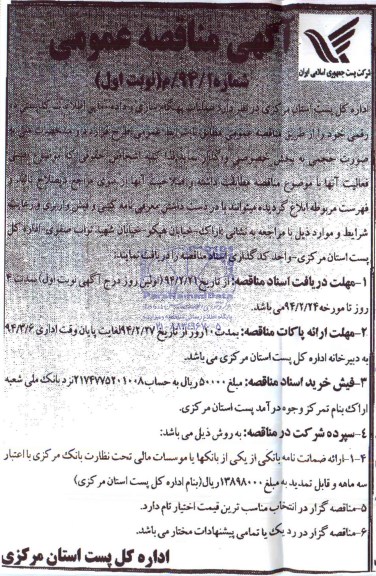 آگهی مناقصه عمومی
شرکت پست جمهوری اسلامی ایران
شماره ۹۴/۱/م (نوبت اول)
اداره کل پست استان مرکزی در نظر دارد عملیات بهنگام سازی و داده نمایی اطلاعات کدپستی ده
رقمی خود را از طریق مناقصه عمومی مطابق با شرایط عمومی طرح قرارداد و مشخصات فنی به
صورت حجمی به بخش خصوصی واگذار نماید. لذا کلیه اشخاص حقوقی که موضوع رسمی
فعالیت آنها با موضوع مناقصه مطابقت داشته و صلاحیت آنها از سوی مراجع ذیصلاح تائید و
فهرست مربوطه ابلاغ گردیده میتوانند با در دست داشتن معرفی نامه کتبی و فیش واریزی و رعایت
شرایط و موارد ذیل با مراجعه به نشانی: اراک-خیابان هپکو-خیابان شهید نواب صفوی-اداره کل
پست استان مرکزی-واحد کدگذاری اسناد مناقصه را دریافت نمایند:
۱-مهلت دریافت اسناد مناقصه: از تاریخ ۹۴/۲/۲۱ (اولین روز درج آگهی نوبت اول) بمدت ۴
روز تا مورخه ۹۴/۲/۲۴ می باشد.
۲-مهلت ارائه پاکات مناقصه: بمدت ۱۰ روز از تاریخ ۹۴/۲/۲۷ لغایت پایان وقت اداری ۹۴/۳/۶
به دبیرخانه اداره کل پست استان مرکزی می باشد.
۳-فیش خرید اسناد مناقصه: مبلغ ۵۰۰۰۰۰ ریال به حساب ۲۱۷۴۷۷۵۲۰۱۰۰۸ نزد بانک ملی شعبه
اراک بنام تمرکز وجوه درآمد پست استان مرکزی.
۴-سپرده شرکت در مناقصه: به روش ذیل می باشد:
۴-۱-ارائه ضمانت نامه بانکی از یکی از بانکها یا موسسات مالی تحت نظارت بانک مرکزی با اعتبار
سه ماهه و قابل تمدید به مبلغ ۱۳۸۹۸۰۰۰ ریال (بنام اداره کل پست استان مرکزی)
۵-مناقصه گزار در انتخاب مناسب ترین قیمت اختیار تام دارد.
۶-مناقصه گزار در رد یک یا تمامی پیشنهادات مختار می باشد.
اداره کل پست استان مرکزی